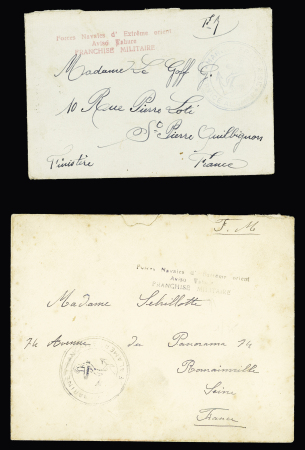 F.M
Forces Navales d' Extrême orient
Aviso
FRANCHISE MILITAIRE
Madame Le Goff G.
10 Rue Pierre Loti
St Pierre Quilbignon
Finistère
France
F. M
Forces Navales d'Extrême orient
Aviso
FRANCHISE MILITAIRE
Madame
74 Avenue du Panorama 74
Romainville
Seine
France